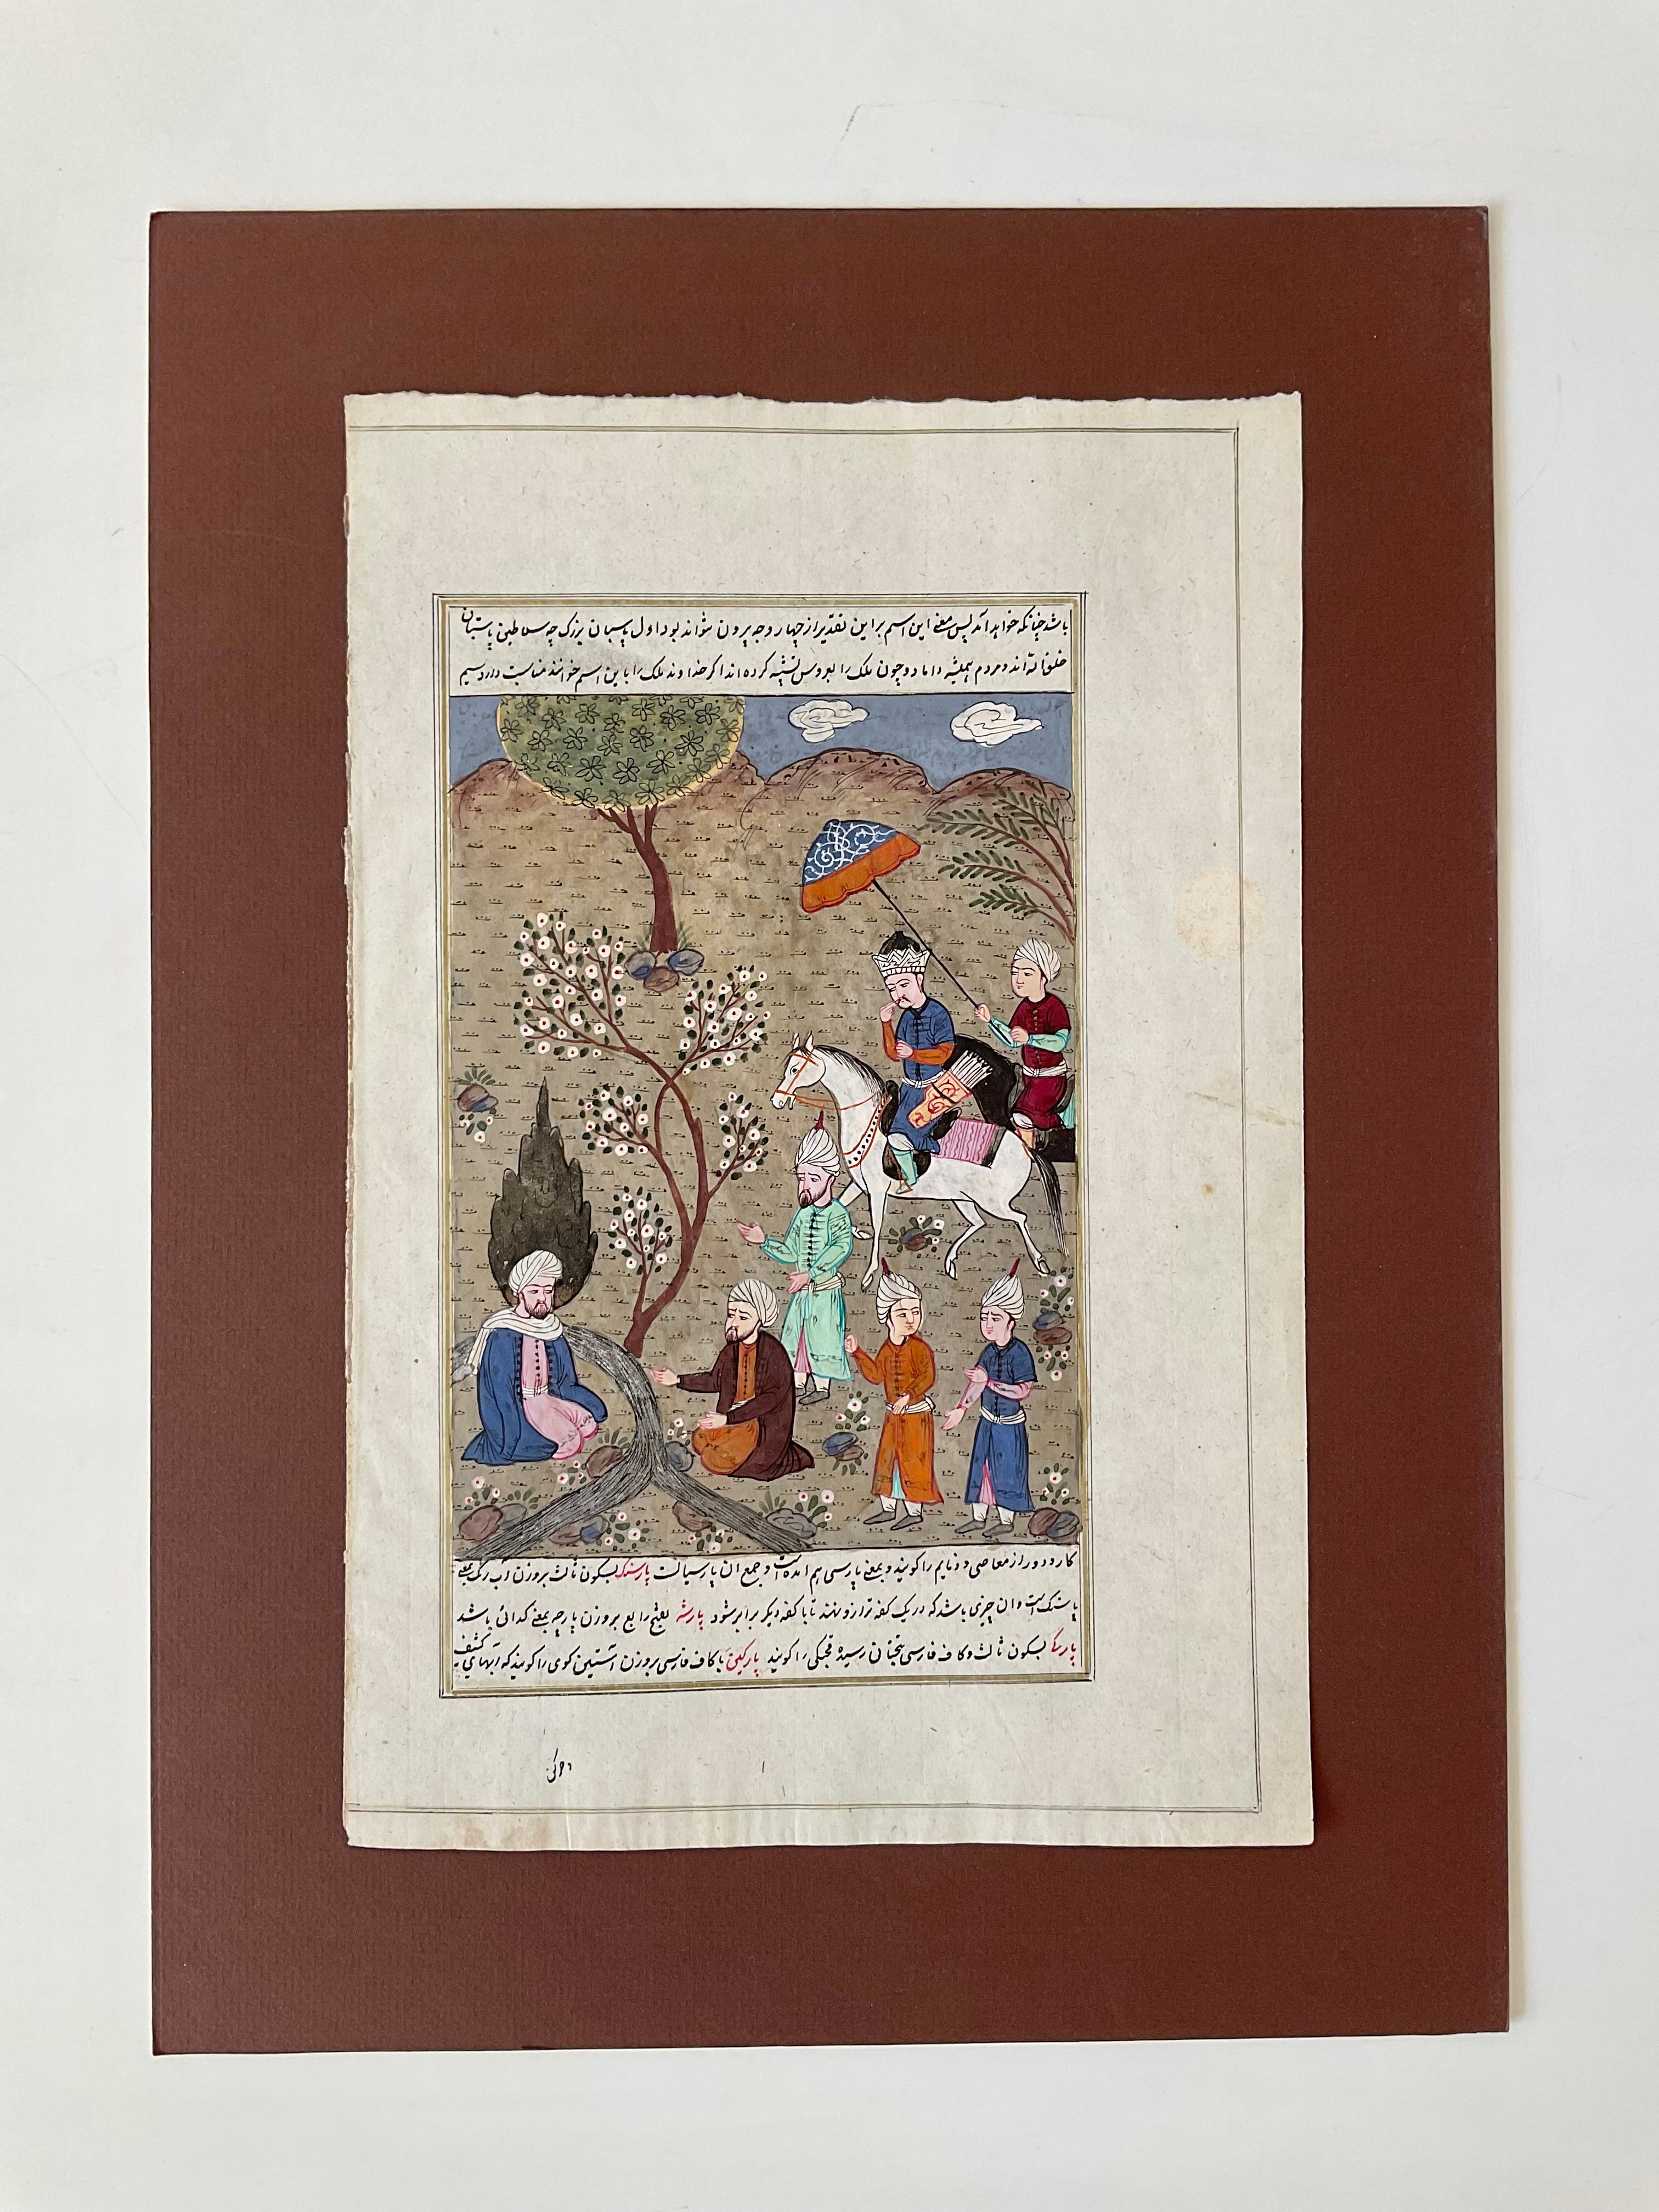 باشد چنانکه خواهد آمد پس معنی این اسم بر این تقدیر از چهار وجه بیرون نتواند بود اول پاسبان بزرگ چه سلاطین پاسبان
خلق‌الله‌اند و مردم همیشه داماد و چون ملک را بعروس تشبیه کرده‌اند اگر خداوند ملک را باین اسم خوانند مناسبت دارد سیم
کار و دور از معاصی و ذمایم را گویند و بمعنی پارسی هم آمده است و جمع آن پارسیانست پارسنگ بسکون ثالث بر وزن آب رنگ بمعنی
پاسنگ است و آن چیزی باشد که در یک کفه ترازو نهند تا با کفه دیگر برابر شود پارشه بفتح رابع بر وزن پارچه بمعنی گدائی باشد
پارکی بسکون ثالث و کاف فارسی بتحتانی رسیده را گویند پارگین با کاف فارسی بر وزن آستین گوی را گویند که آبهای کثیف